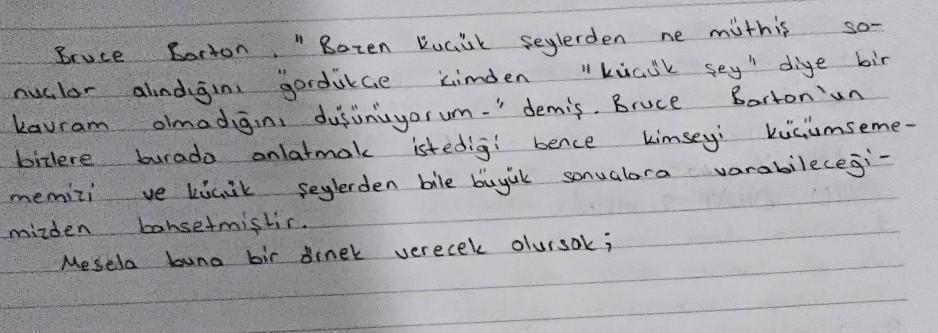 Bruce Barton, "Bazen küçük şeylerden ne müthiş so-
nuçlar alındığını gördükçe içimden "küçük şey" diye bir
kavram olmadığını düşünüyorum." demiş. Bruce Barton'un
bizlere burada anlatmak istediği bence kimseyi küçümseme-
memizi ve küçük şeylerden bile büyük sonuçlara varabileceği-
mizden bahsetmiştir.
Mesela buna bir örnek verecek olursak;